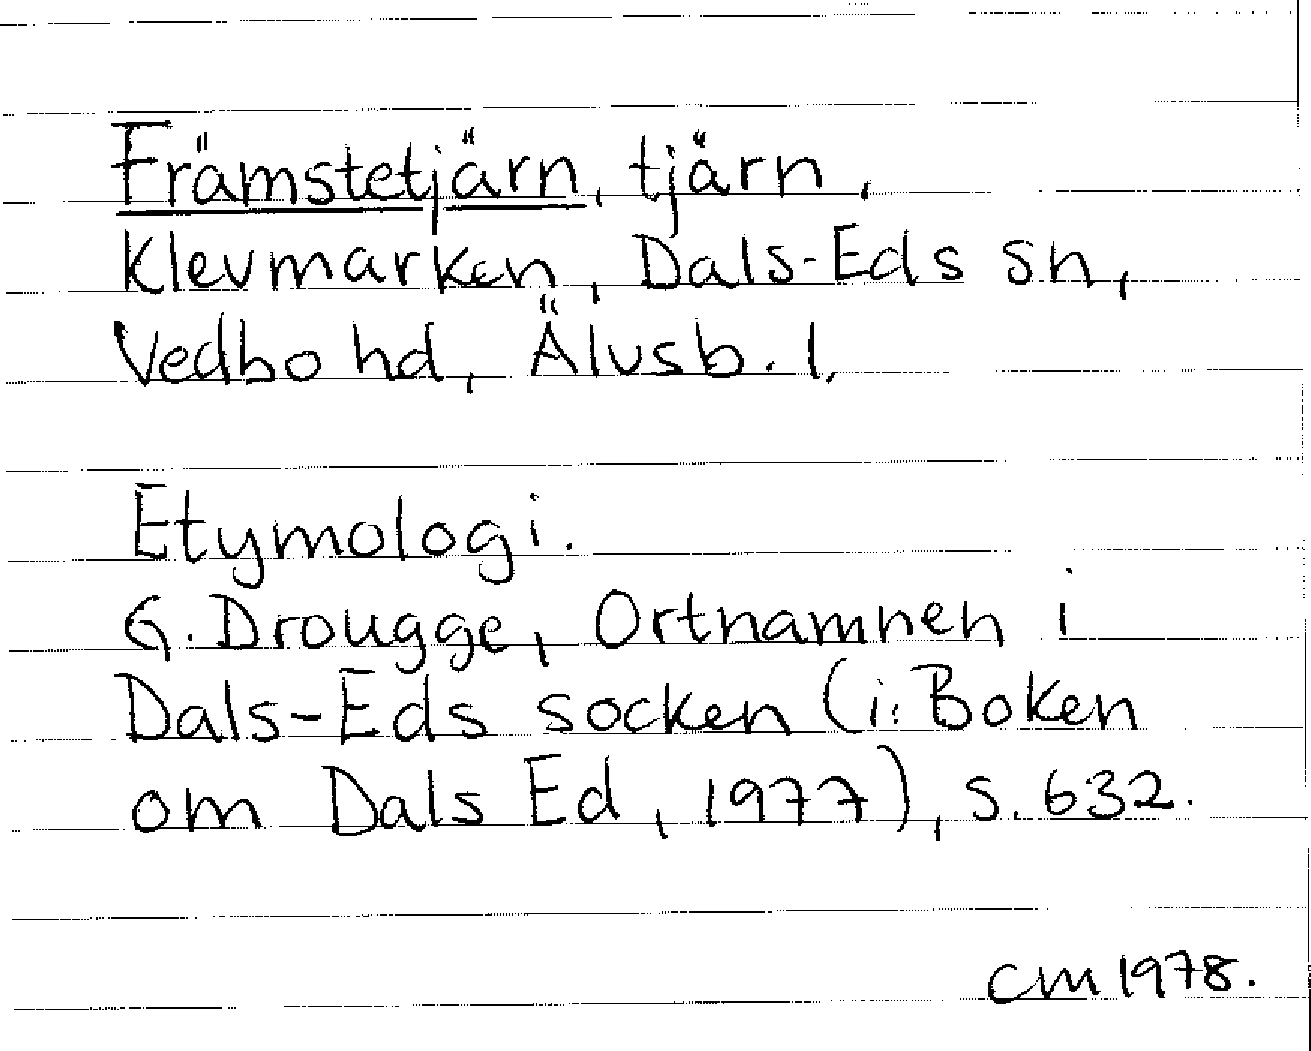 Främstetjärn, tjärn,
Klevmarken, Dals-Eds sn,
Vedbo hd, Älvsb. l.
Etymologi.
G. Drougge, Ortnamnen i
Dals-Eds socken (i: Boken
om Dals Ed, 1977), s. 632.
CM 1978.